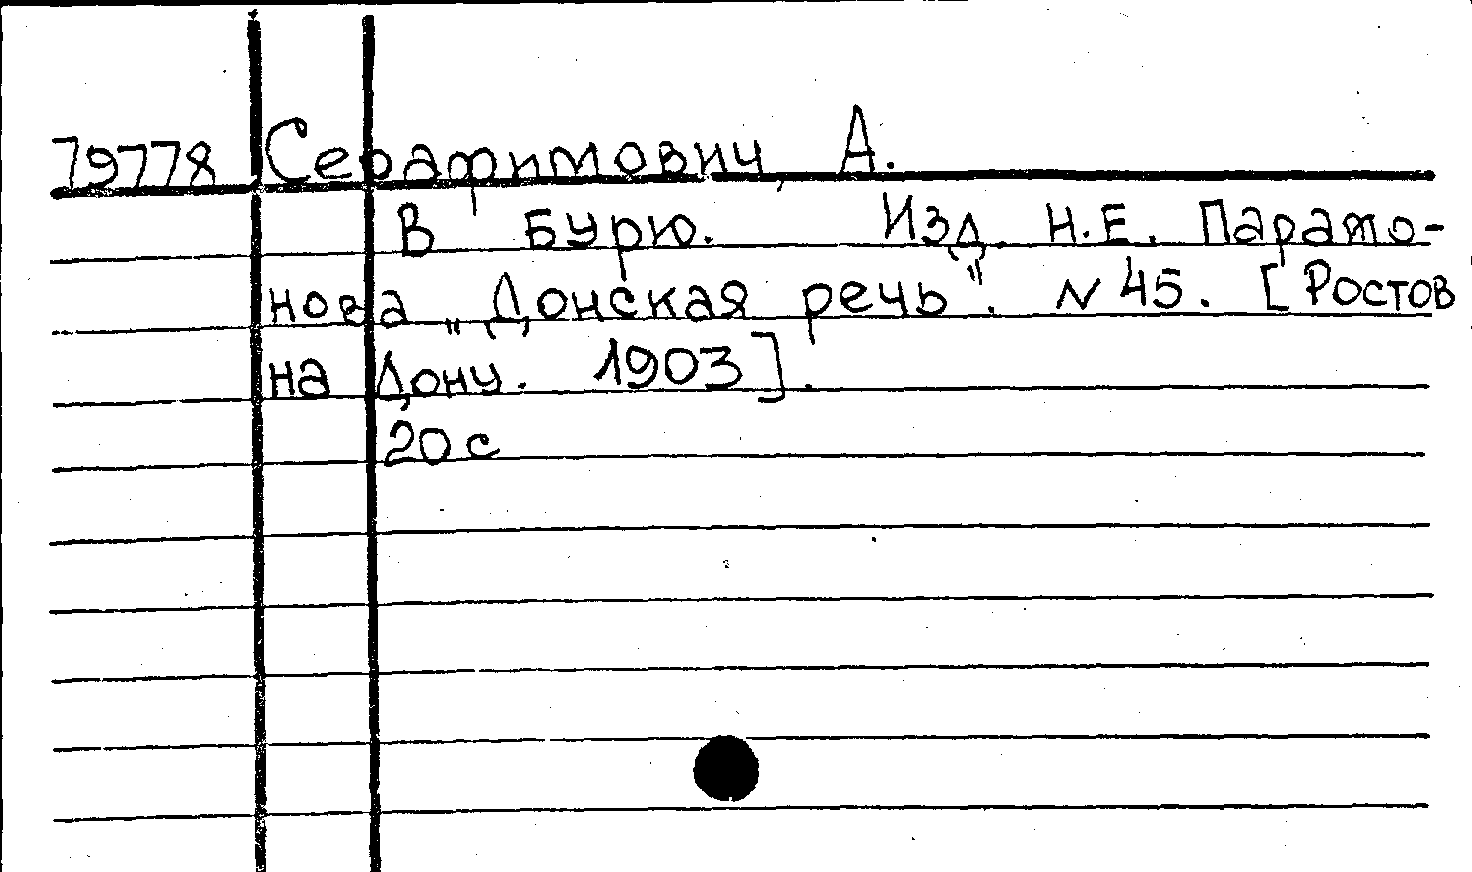 79778 Серафимович, А.
В Бурю. Изд. Н.Е. Парамо-
нова „Донская речь". N 45. [Ростов
на Дону. 1903].
20 с